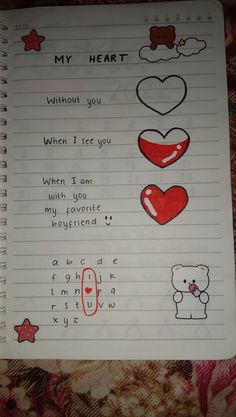 MY HEART
Without you
When I see you
When I am
with you
my favorite
boyfriend
a b c d e
f g h i j k
l m n ❤ p q
r s t u v w
x y z